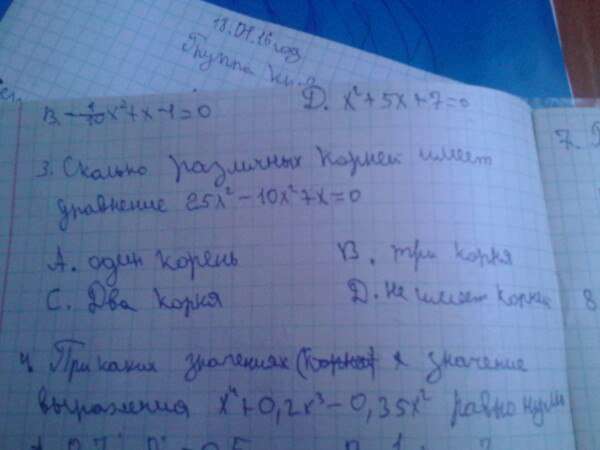 18.01.16 год
Группа
B. -1/10x²+x-1=0 D. x²+5x+7=0
3. Сколько различных корней имеет
уравнение 25x²-10x²+x=0
A. один корень B. три корня
C. Два корня D. не имеет корней
4. При каких значениях (корней) x значение
выражения x⁴+0,2x³-0,35x² равно нулю
7.
8